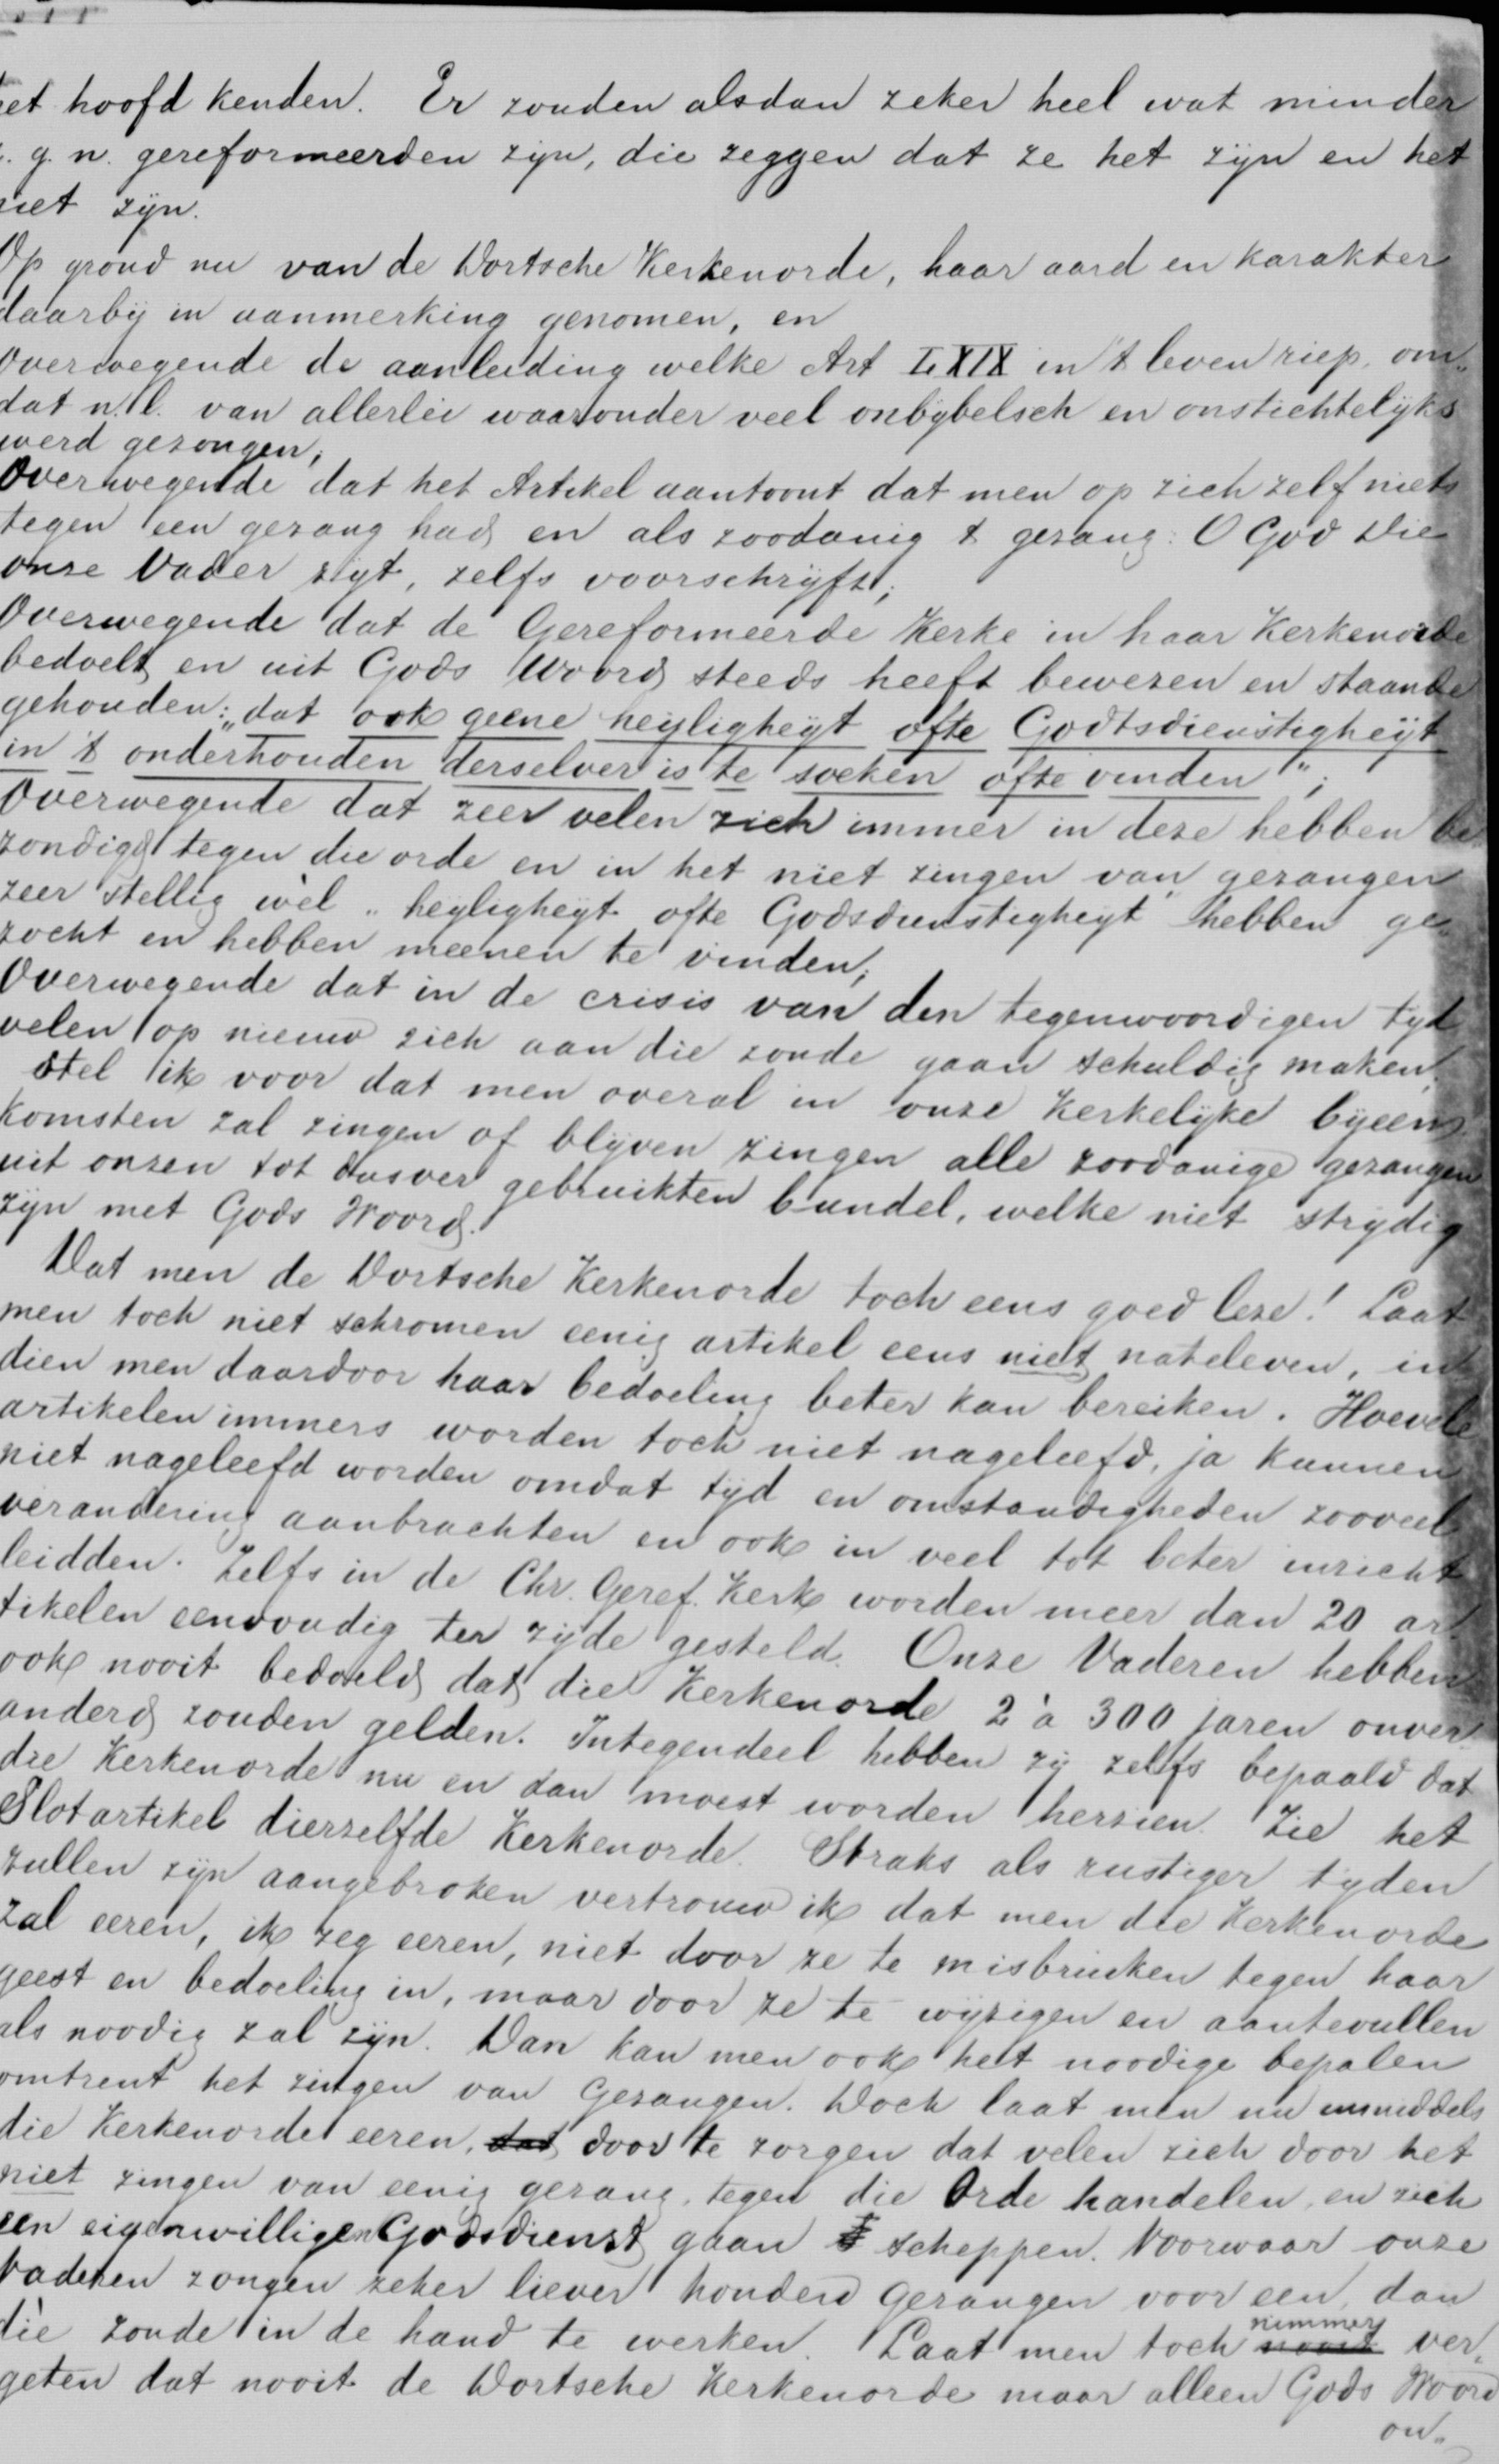 et hoofd kenden. Er zouden alsdan zeker heel wat minder
. g. n. gereformeerden zijn, die zeggen dat ze het zijn en het
niet zijn.
Op grond nu van de Dortsche Kerkenorde, haar aard en karakter
daarbij in aanmerking genomen, en
Overwegende de aanleiding welke Art LXIX in 't leven riep, om„
dat n.l. van allerlei waaronder veel onbijbelsch en onstichtelijks
werd gezongen;
Overwegende dat het Artikel aantoont dat men op zich zelf niets
tegen een gezang had en als zoodanig 't gezang: O God Die
onze Vader zijt, zelfs voorschrijft;
Overwegende dat de Gereformeerde Kerke in haar Kerkenorde
bedoelt en uit Gods Woord steeds heeft bewezen en staande
gehouden: „dat ook geene heyligheyt ofte Godtsdienstigheyt
in 't onderhouden derselver is te soeken ofte vinden";
Overwegende dat zeer velen zich immer in deze hebben be„
zondigd tegen die orde en in het niet zingen van gezangen
zeer stellig wèl „heyligheyt ofte Godsdienstigheyt" hebben ge„
zocht en hebben meenen te vinden;
Overwegende dat in de crisis van den tegenwoordigen tijd
velen op nieuw zich aan die zonde gaan schuldig maken,
stel ik voor dat men overal in onze Kerkelijke bijeen„
komsten zal zingen of blijven zingen alle zoodanige gezangen
uit onzen tot dusver gebruikten bundel, welke niet strijdig
zijn met Gods Woord.
Dat men de Dortsche Kerkenorde toch eens goed leze! Laat
men toch niet schromen eenig artikel eens niet nateleven, in„
dien men daardoor haar bedoeling beter kan bereiken. Hoevele
artikelen immers worden toch niet nageleefd, ja kunnen
niet nageleefd worden omdat tijd en omstandigheden zooveel
verandering aanbrachten en ook in veel tot beter inzicht
leidden. Zelfs in de Chr. Geref. Kerk worden meer dan 20 ar„
tikelen eenvoudig ter zijde gesteld. Onze Vaderen hebben
ook nooit bedoeld dat die Kerkenorde 2 à 300 jaren onver„
anderd zouden gelden. Integendeel hebben zij zelfs bepaald dat
die Kerkenorde nu en dan moest worden herzien. Zie het
Slotartikel dierzelfde Kerkenorde. Straks als rustiger tijden
zullen zijn aangebroken vertrouw ik dat men die Kerkenorde
zal eeren, ik zeg eeren, niet door ze te misbruiken tegen haar
geest en bedoeling in, maar door ze te wijzigen en aantevullen
als noodig zal zijn. Dan kan men ook het noodige bepalen
omtrent het zingen van Gezangen. Doch laat men nu inmiddels
die Kerkenorde eeren, dat door te zorgen dat velen zich door het
niet zingen van eenig gezang, tegen die Orde handelen, en zich
een eigenwilligen Godsdienst gaan scheppen. Voorwaar onze
Vaderen zongen zeker liever honderd Gezangen voor een, dan
die zonde in de hand te werken. Laat men toch nooit nimmer ver„
geten dat nooit de Dortsche Kerkenorde maar alleen Gods Woord
on„